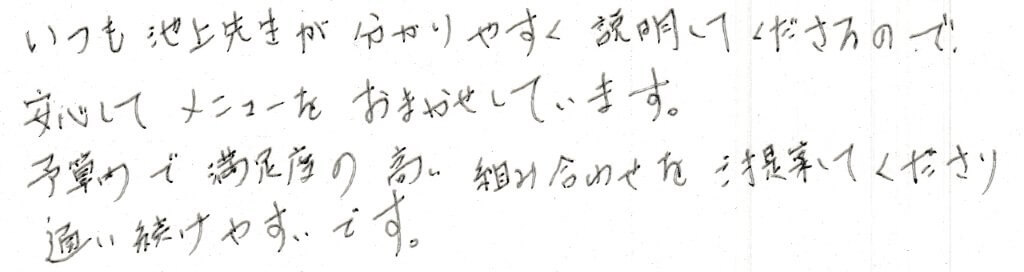 いつも池上先生が分かりやすく説明してくださるので、
安心してメニューをおまかせしています。
予算内で満足度の高い組み合わせをご提案してくださり
通い続けやすいです。